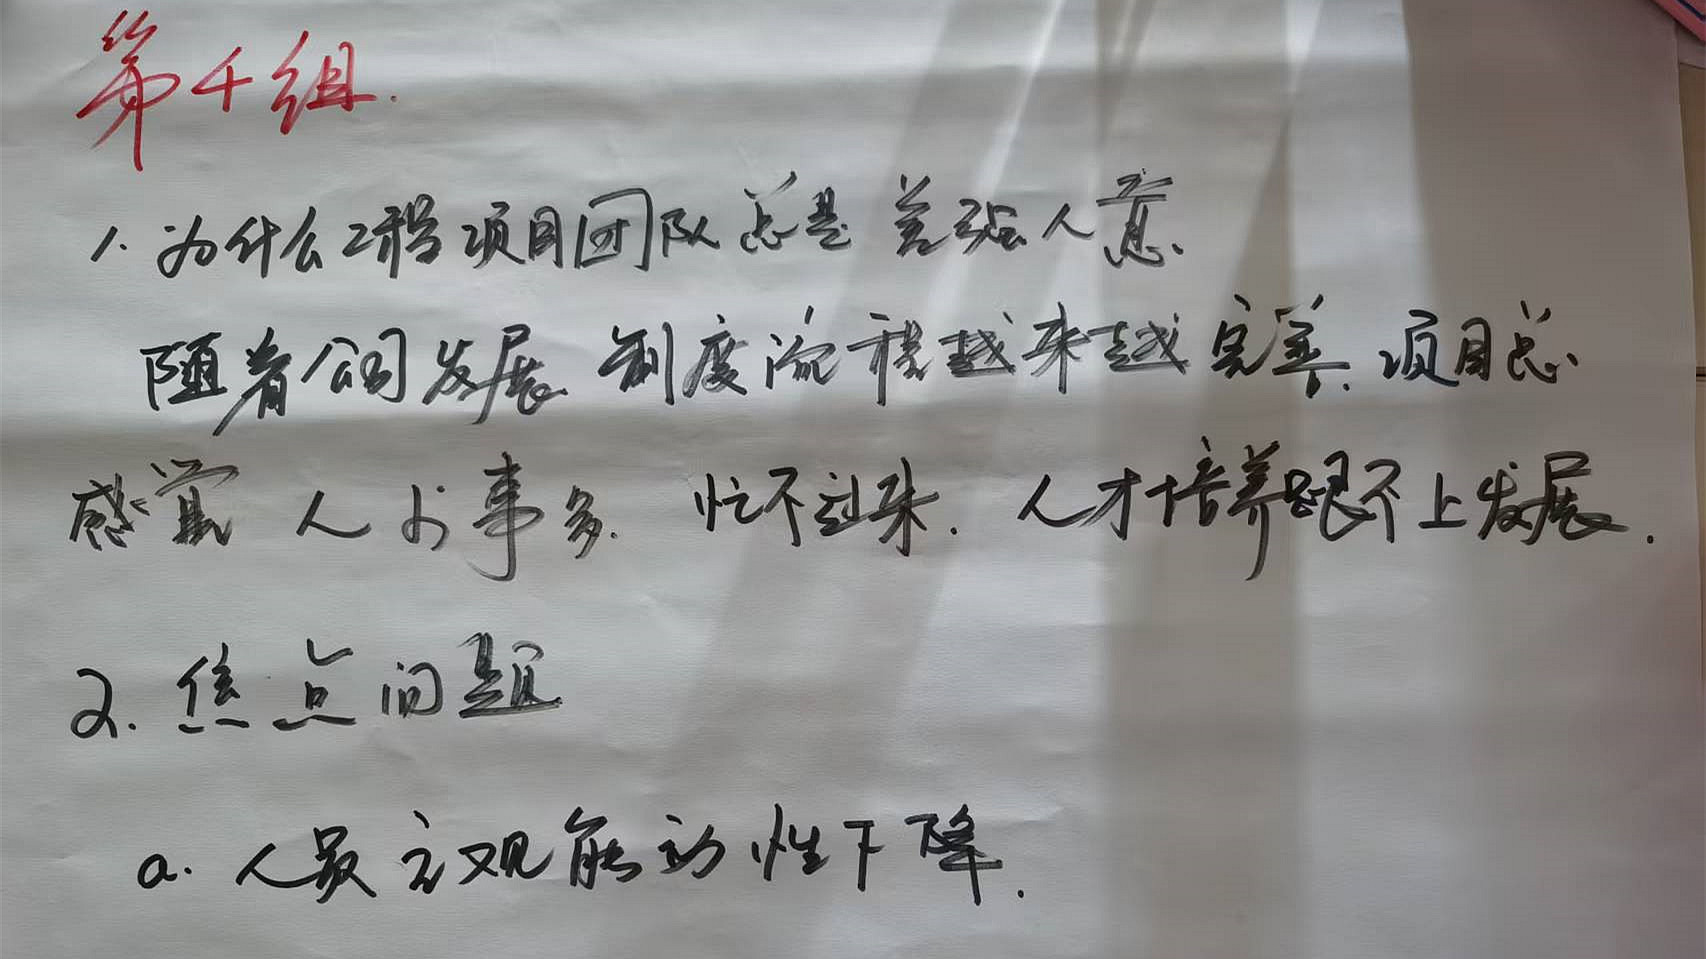 第千组.
1. 为什么工程项目团队总是差强人意.
随着公司发展 制度流程越来越完善. 项目总
感觉 人少事多. 忙不过来. 人才培养跟不上发展.
2. 焦点问题
a. 人员主观能动性下降.